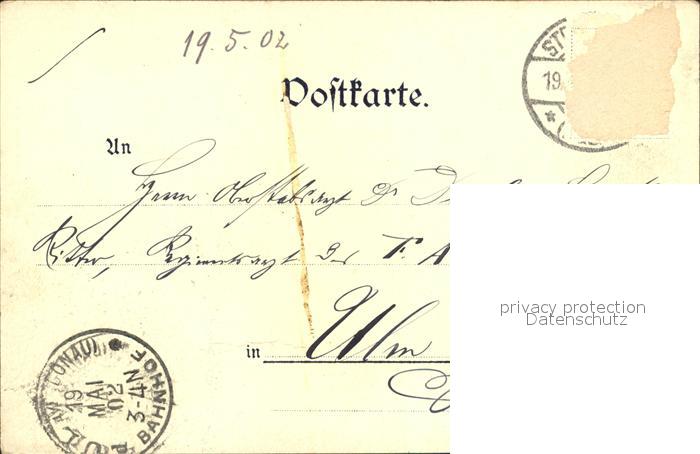 19.5.02
ST
19.
Postkarte.
An
Herrn Oberstabsarzt Dr
Ritter, Regiments­arzt des F. A
in Ulm
privacy protection
Datenschutz
ULM (DONAU)
19
MAI
02
3-4N
BAHNHOF